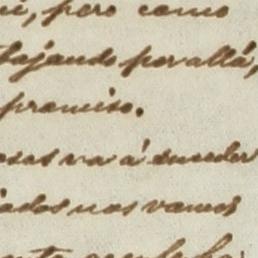 , pero como
bajando por allá,
promiso.
osas va á suceder
iados nos vamos